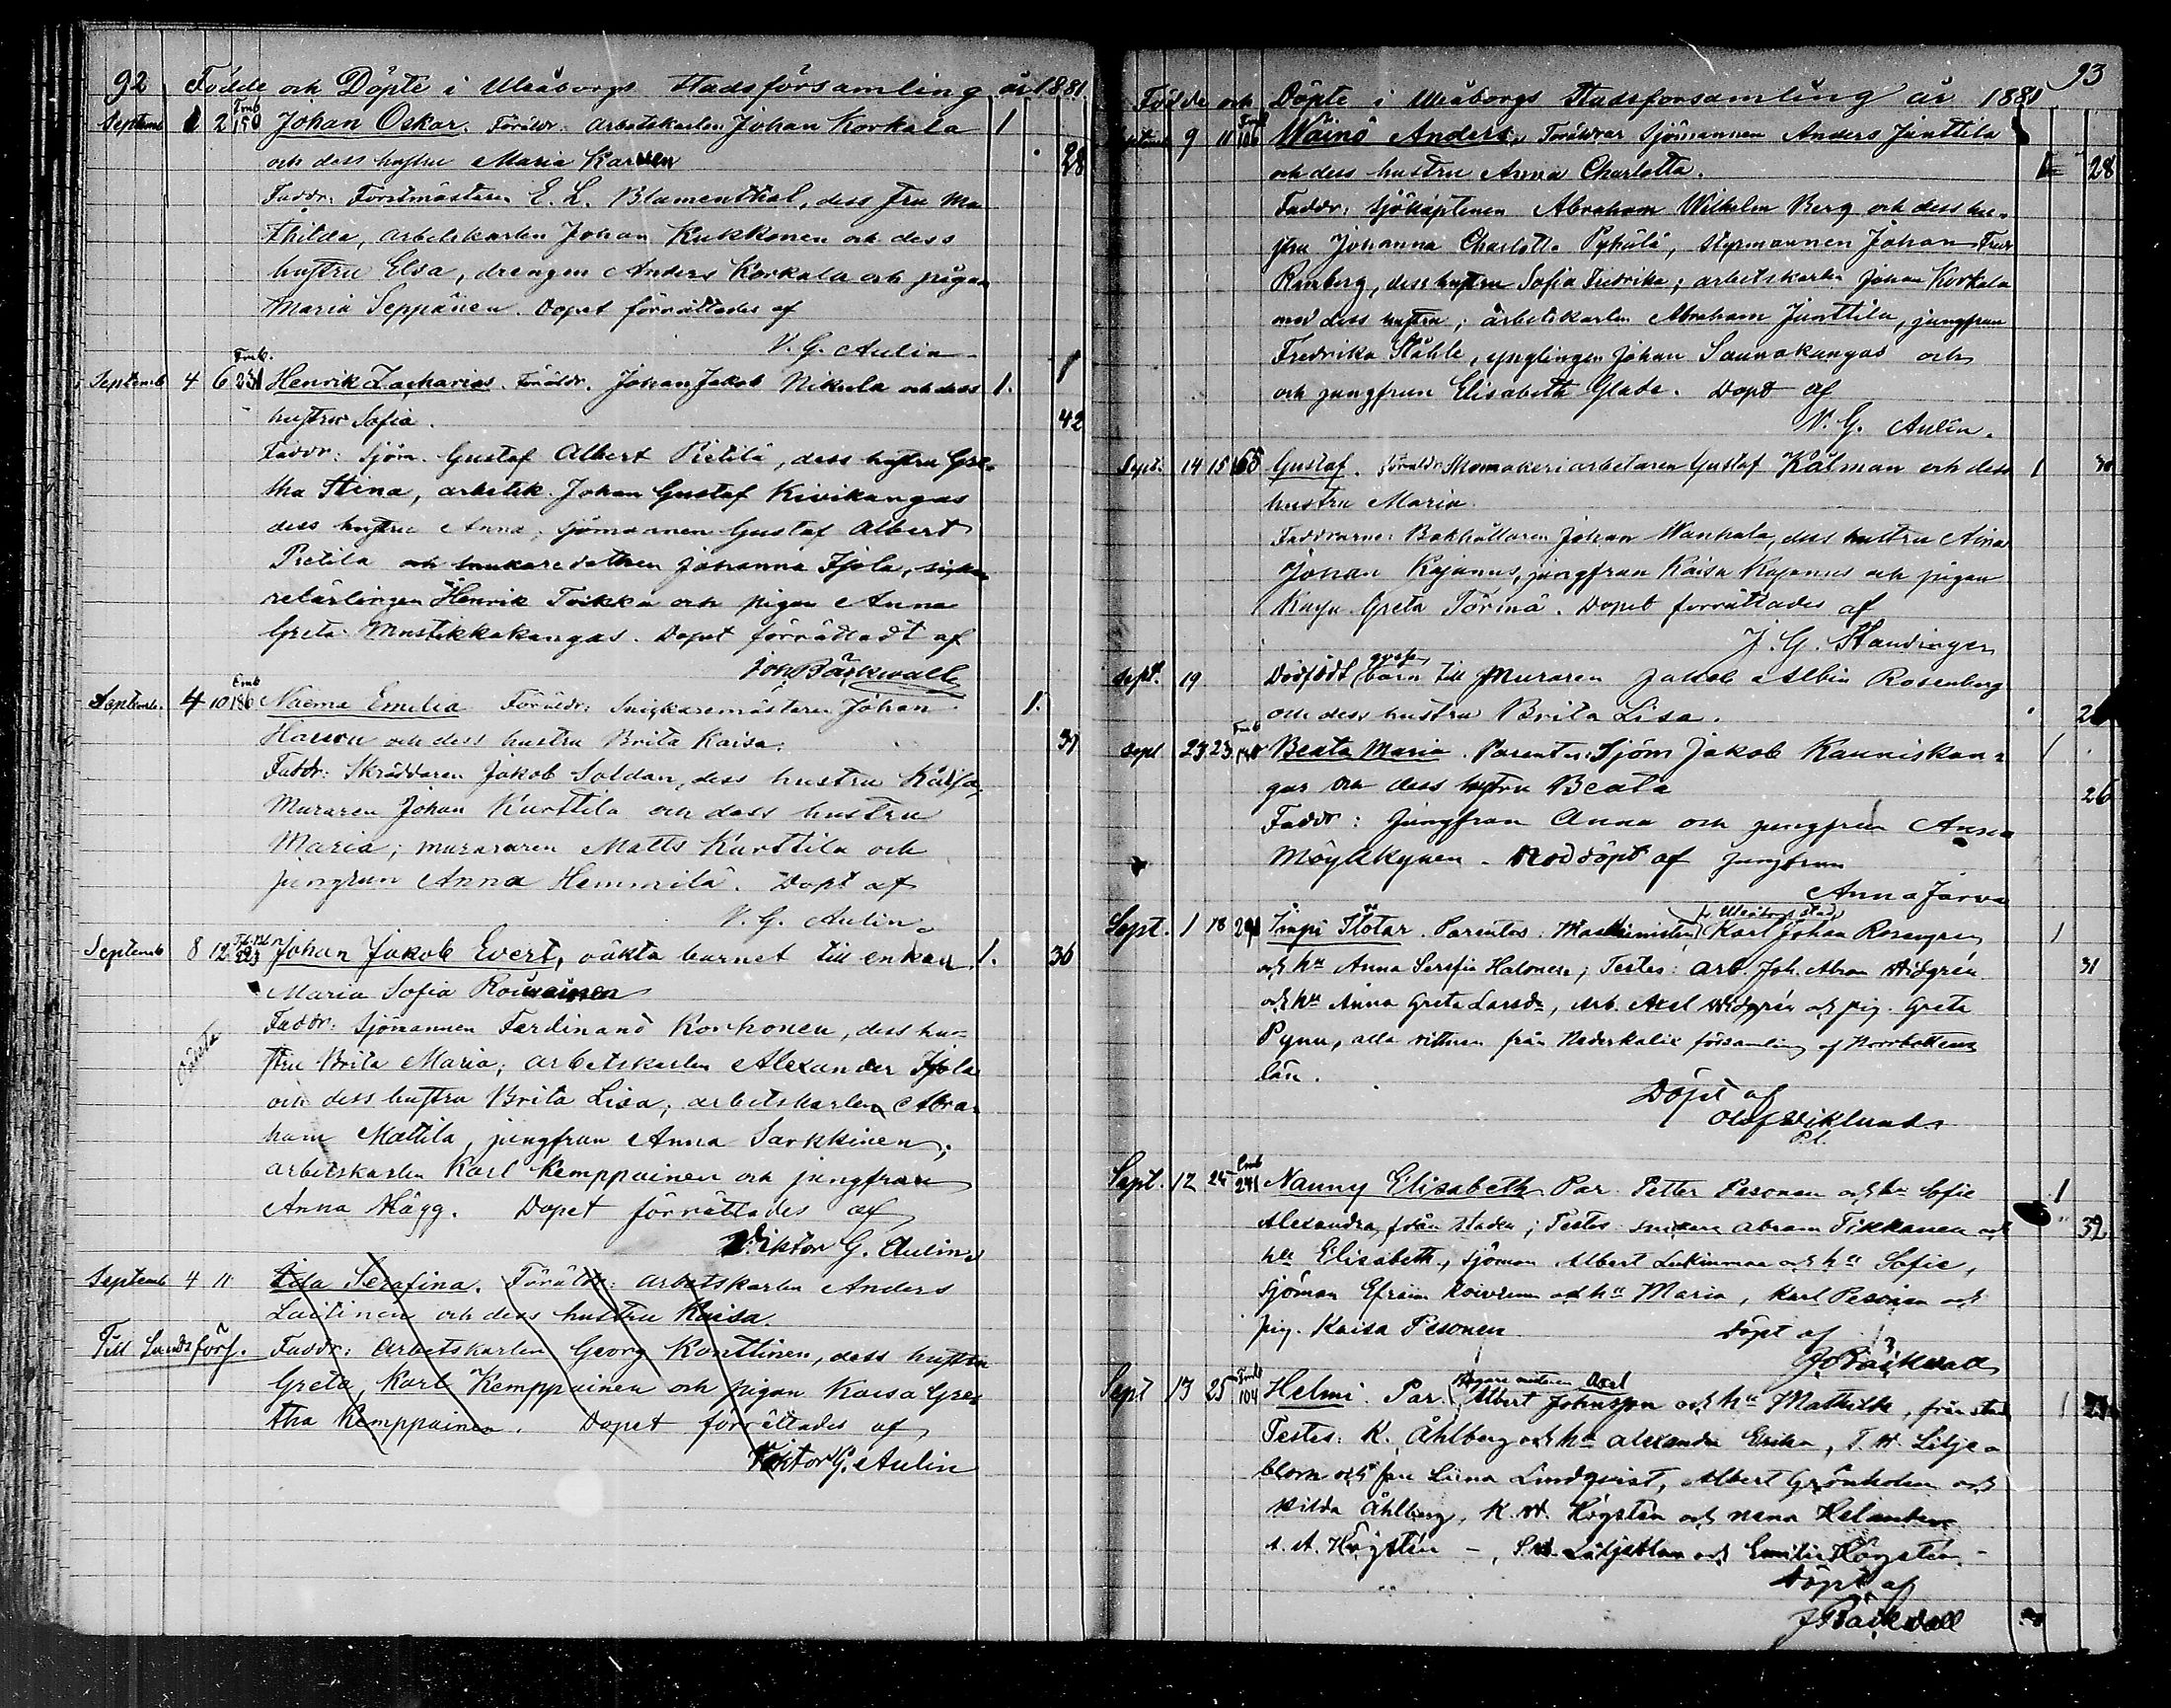 92 Födde och Döpte i Uleåborgs Stadsförsamling år 1881
Septemb 1 2 150 Johan Oskar. Föräldr: arbetskarlen Johan Korkala 1
och dess hustru Maria Karven 28
Faddr: Forstmästaren E. L. Blumenthal, dess fru Ma
thilda, arbetskarlen Johan Kukkonen och dess
hustru Elsa, drengen Anders Korkala och pigan
Maria Seppänen. Dopet förrättades af
V. G. Aulin
Septemb 4 6 251 Henrik Zacharias. Föräldr. Johan Jakob Nikula och dess 1.
hustru Sofia. 42
Faddr: Sjöm. Gustaf Albert Pietilä, dess hustru Gre-
tha Stina, arbetsk. Johan Gustaf Kivikangas
dess hustru Anna, sjömannen Gustaf Albert
Pietilä och Johanna Ijola,
relärlingen Henrik Toikka och pigan Anna
Greta Mustikkakangas. Dopet förrättadt af
Joh. Bäckwall
Septemb. 4 10 186 Naëma Emilia Föräldr: Snickaremästaren Johan 1.
och dess hustru Brita Kaisa. 37
Faddr: Skräddaren Jakob Soldan, dess hustru Kaisa,
Muraren Johan Kurttila och dess hustru
Maria; muraren Matts Kurttila och
jungfrun Anna Hemmilä. Döpt af
V. G. Aulin.
Septemb 8 12 Johan Jakob Evert, oäkta barnet till enkan 1. 36
Maria Sofia Rouvainen
Oäkta
Faddr: Sjömannen Ferdinand Korhonen, dess hu-
stru Brita Maria; arbetskarlen Alexander Ijola
och dess hustru Brita Lisa; arbetskarlen Abra-
ham Mattila, jungfrun Anna Sarkkinen;
arbetskarlen Karl Kemppainen och jungfrun
Anna Hägg. Dopet förrättades af
Viktor G. Aulin
Septemb 4 11 Ida Serafina. Föräldr: arbetskarlen Anders
Laitinen och dess hustru Kaisa.
Till Landsförs. Faddr: Arbetskarlen Georg Konttinen, dess hustru
Greta, Karl Kemppainen och pigan Kaisa Gre-
tha Kemppainen. Dopet förrättades af
Viktor G. Aulin
93
Födde och Döpte i Uleåborgs Stadsforsamling år 1881
Septemb 9 11 106 Wäinö Anders. Föräldrar Sjömannen Anders Junttila
och dess hustru Anna Charlotta. 28
Faddr: Sjökaptenen Abraham Wilhelm Berg och dess hu-
stru Johanna Charlotta Pyhälä, styrmannen Johan Fredr
Ramberg, dess hustru Sofia Fredrika; arbetskarlen Johan Korkala
med dess hustru; arbetskarlen Abraham Junttila, jungfrun
Fredrika Ståhle, ynglingen Johan Saunakangas och
och jungfrun Elisabeth Glade. Döpt af
V. G. Aulin.
Sept. 14 15 Gustaf. Föräldr. Skomakeriarbetaren Gustaf Kålman och dess 1 30
hustru Maria.
Faddrarne: Bokhållaren Johan Wanhala, dess hustru Aina
Johan Kajanus, jungfrun Kaisa Kajanus och pigan
Kaija Greta Törmä. Dopet förrättades af
J. G. Standinger
Sept. 19 Dödfödt gosse barn till Muraren Jakob Albin Rosenberg
och dess hustru Brita Lisa.
Sept 23 23 140 Beata Maria. Parentes: Sjöm Jakob Kauniskan- 1
gas och dess hustru Beata 26
Faddr: Jungfrun Anna och jungfrun Anna
Möylikynen. Nöddöpt af jungfrun
Anna Järve
Sept. 1 18 291 Impi Ilotar. Parentes: Maskinisten fr. Uleåborgs stad Karl Johan Rosengren 1
och hu Anna Serefia Halonen; Testes: arb. Joh. Abram Widgrén 31
och hu Anna Greta Larsdr, arb. Axel Widgrén och pig. Greta
Pynn, alla vittnen från Nederkalix församling af Norrbottens
län.
Döpt af
Olof Wiklund
Sept. 12 25 241 Nanny Elisabeth Par. Petter Pesonen och hu Sofie 1
Alexandra, från staden; Testes snickare Abram Tikkanen och 32
hu Elisabeth, sjöman Albert Lukinmaa och hu Sofie,
sjöman Efraim Koivunen och hu Maria, Karl Pesonen och
pig. Kaisa Pesonen Döpt af
J. Bäckwall
Sept 13 25 104 Helmi. Par. Axel Albert Johnsson och hu Mathilda, från stad 1
Testes: K. Åhlberg och hu Alexandra Erika, T. W. Lilje-
blom och fru Lina Lindqvist, Albert Grönholm och
Hilda Åhlberg, K. W. Högstén och Nana Helander
A. A. Högstén –, Liljeblom och Emilie Högstén –
Döpt af
J. Bäckwall